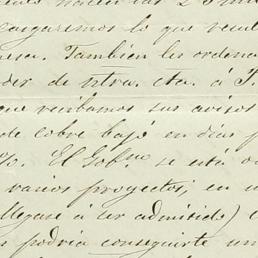 cargaremos lo que
mesa. Tambien les ordena
der de ntra. cta. á
que recibamos sus avisos
de cobre bajó en dias p
%. El Gobno. se está o
varios proyectos, en u
llegase á ser admitido) 
s podria conseguirte un